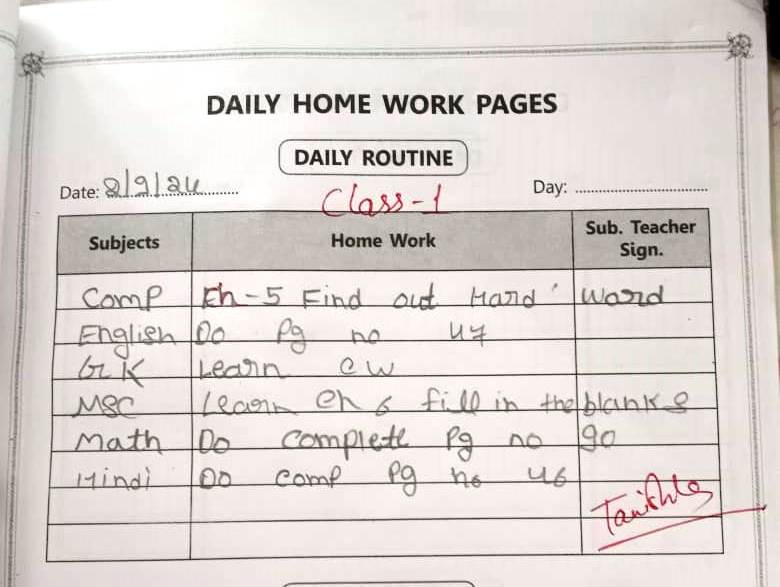 DAILY HOME WORK PAGES
DAILY ROUTINE
Date: 2/9/24 Day:
Class-1
Subjects Home Work Sub. Teacher Sign.
Comp Ch-5 Find out Hard ' Ward
English Do Pg no 47
G.K Learn CW
MSC Learn Ch 6 fill in the blanks
Math Do Complete Pg no 90
Hindi Do comp Pg no 46